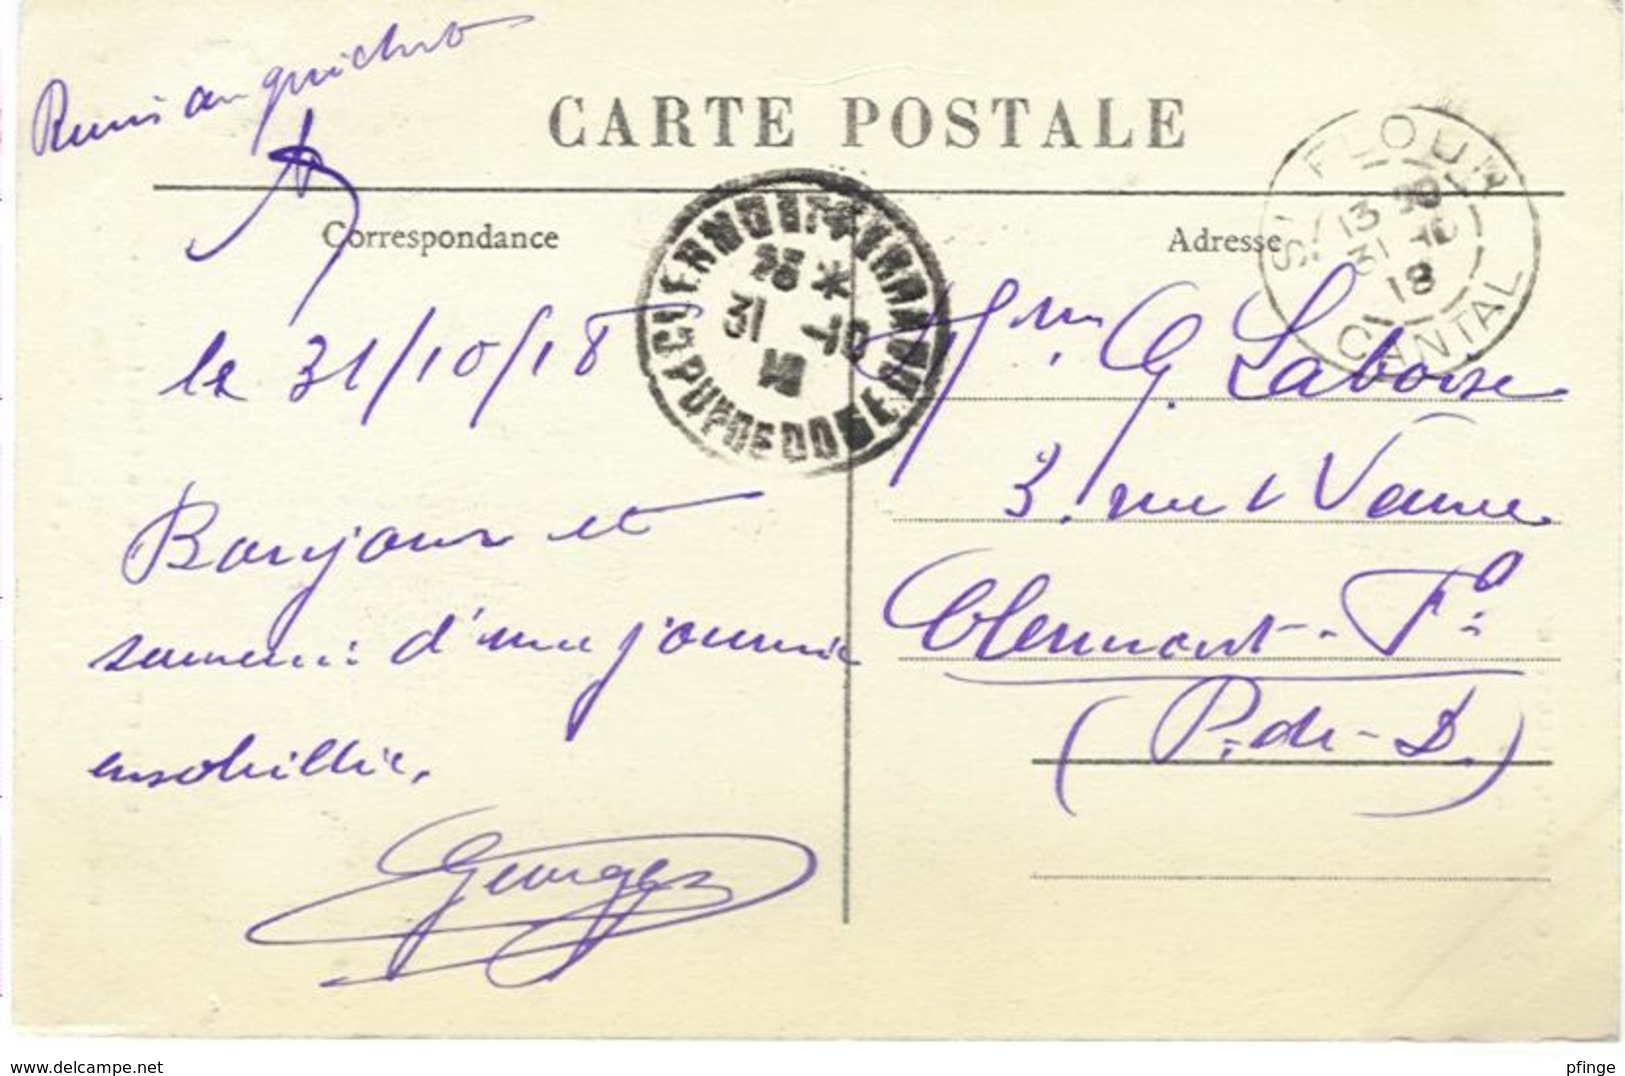 Remis au guichet
CARTE POSTALE
Correspondance
Adresse
ST FLOUR
13
31 -10
18
CANTAL
CLERMONT-FERRAND
31 -10
18
PUY DE DOME
le 31/10/18
Bonjour et
souvenir d'une journée
ensoleillée.
Georges
Mme G. Laborse
3, rue
Clermont-Fd
(P.-de-D.)
www.delcampe.net
pfinge